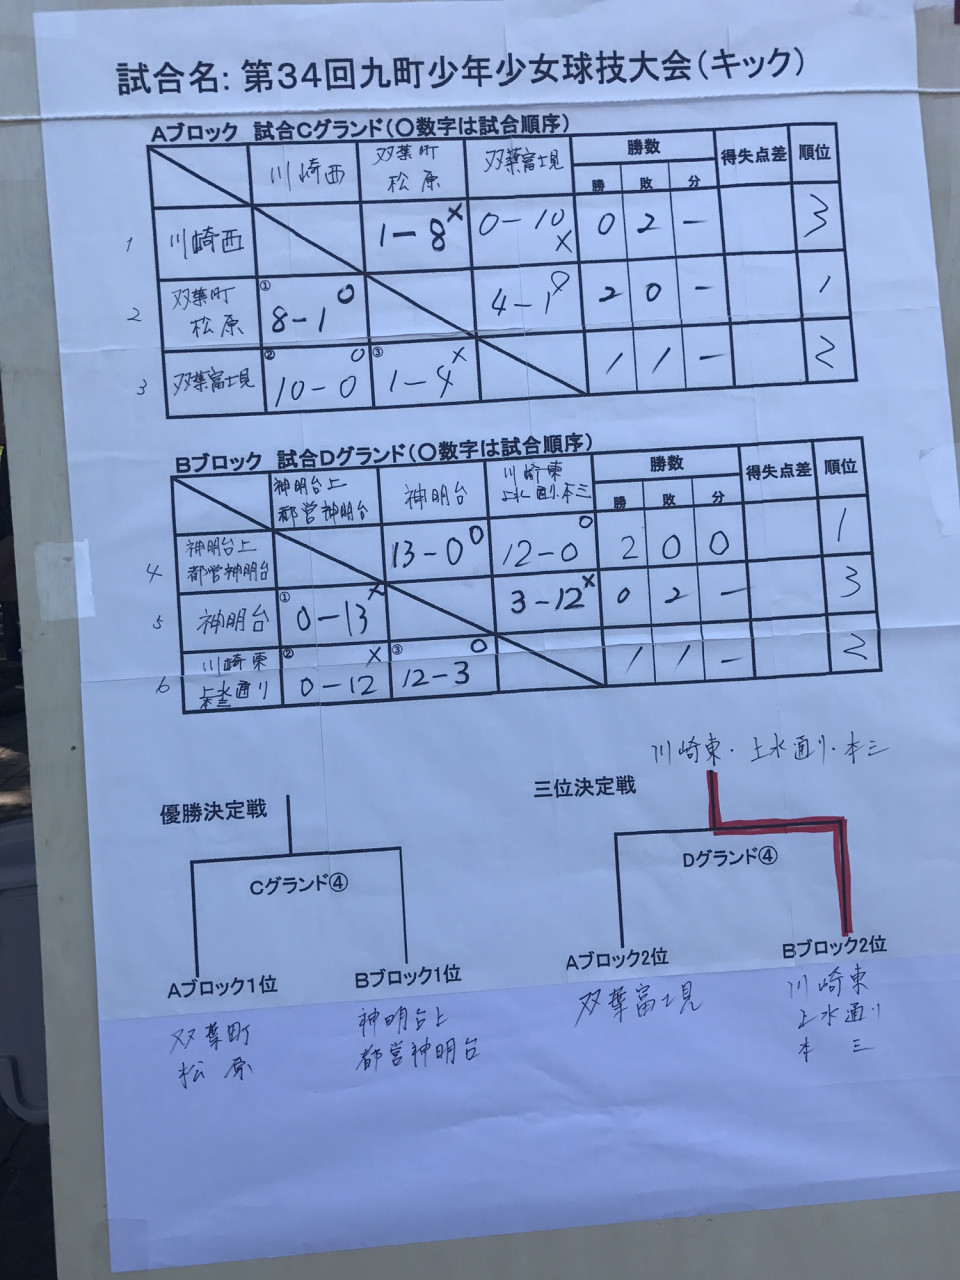 試合名: 第34回九町少年少女球技大会(キック)
Aブロック 試合Cグランド(〇数字は試合順序)
川崎西 双葉町 松原 双葉富士見 勝数 得失点差 順位
勝 敗 分
1 川崎西 1-8 × 0-10 × 0 2 - 3
2 双葉町 松原 ① 8-1 〇 4-1 〇 2 0 - 1
3 双葉富士見 ② 10-0 〇 ③ 1-4 × 1 1 - 2
Bブロック 試合Dグランド(〇数字は試合順序)
神明台上 都営神明台 神明台 川崎東 上水通り・本三 勝数 得失点差 順位
勝 敗 分
4 神明台上 都営神明台 13-0 〇 12-0 〇 2 0 0 1
5 神明台 ① 0-13 × 3-12 × 0 2 - 3
6 川崎東 上水通り 本三 ② 0-12 × ③ 12-3 〇 1 1 - 2
川崎東・上水通り・本三
優勝決定戦
三位決定戦
Cグランド④
Dグランド④
Aブロック1位
Bブロック1位
Aブロック2位
Bブロック2位
双葉町
松原
神明台上
都営神明台
双葉富士見
川崎東
上水通り
本三